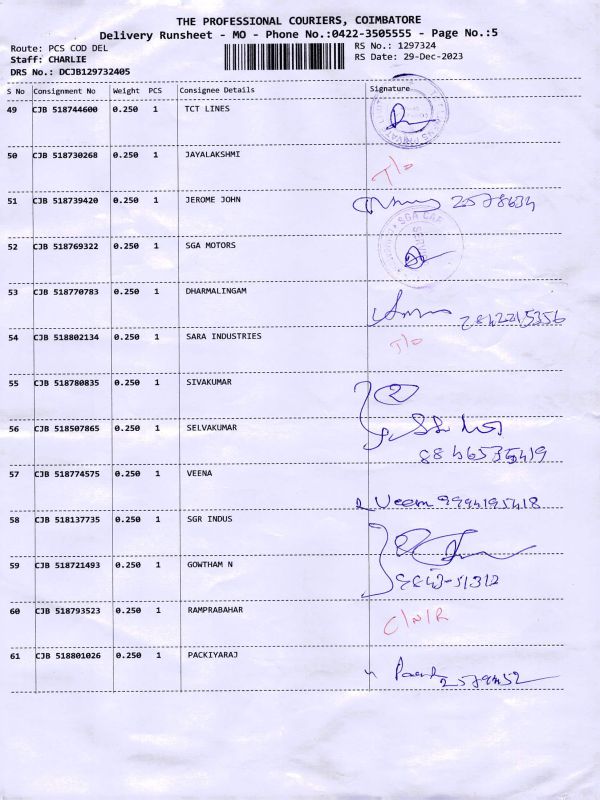 THE PROFESSIONAL COURIERS, COIMBATORE
Delivery Runsheet - MO - Phone No.:0422-3505555 - Page No.:5
Route: PCS COD DEL
Staff: CHARLIE
DRS No.: DCJB129732405
RS No.: 1297324
RS Date: 29-Dec-2023
S No Consignment No Weight PCS Consignee Details Signature
49 CJB 518744600 0.250 1 TCT LINES
50 CJB 518730268 0.250 1 JAYALAKSHMI T/O
51 CJB 518739420 0.250 1 JEROME JOHN 2578634
52 CJB 518769322 0.250 1 SGA MOTORS SGA CAR
53 CJB 518770783 0.250 1 DHARMALINGAM
54 CJB 518802134 0.250 1 SARA INDUSTRIES T/O
55 CJB 518780835 0.250 1 SIVAKUMAR 2
56 CJB 518507865 0.250 1 SELVAKUMAR
57 CJB 518774575 0.250 1 VEENA Veem 9994195418
58 CJB 518137735 0.250 1 SGR INDUS
59 CJB 518721493 0.250 1 GOWTHAM N
60 CJB 518793523 0.250 1 RAMPRABAHAR C/N/R
61 CJB 518801026 0.250 1 PACKIYARAJ